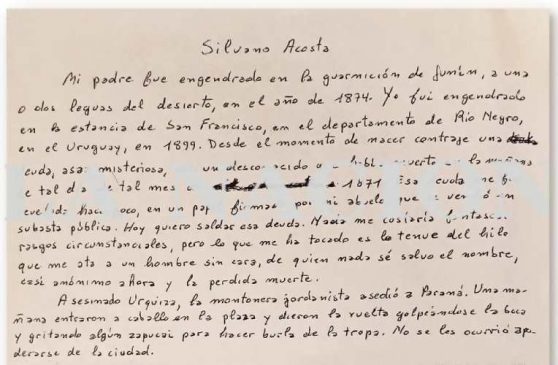 Silvano Acosta
Mi padre fue engendrado en la guarnición de Junín, a una
o dos leguas del desierto, en el año de 1874. Yo fui engendrado
en la estancia de San Francisco, en el departamento de Río Negro,
en el Uruguay, en 1899. Desde el momento de nacer contraje una
euda, asaz misteriosa, un desconocido a la mañana
e tal día e tal mes 1871 Esa euda me f
hace oco, en un pap firmado por mi abuelo que se ven ó en
subasta pública. Hoy quiero saldar esa deuda. Nada me costaría fantasear
rasgos circunstanciales, pero lo que me ha tocado es lo tenue del hilo
que me ata a un hombre sin cara, de quien nada sé salvo el nombre,
casi anónimo ahora y la perdida muerte.
Asesinado Urquiza, la montonera jordanista asedió a Paraná. Una ma-
ñana entraron a caballo en la plaza y dieron la vuelta golpeándose la boca
y gritando algún zapucai para hacer burla de la tropa. No se les ocurrió apo-
derarse de la ciudad.